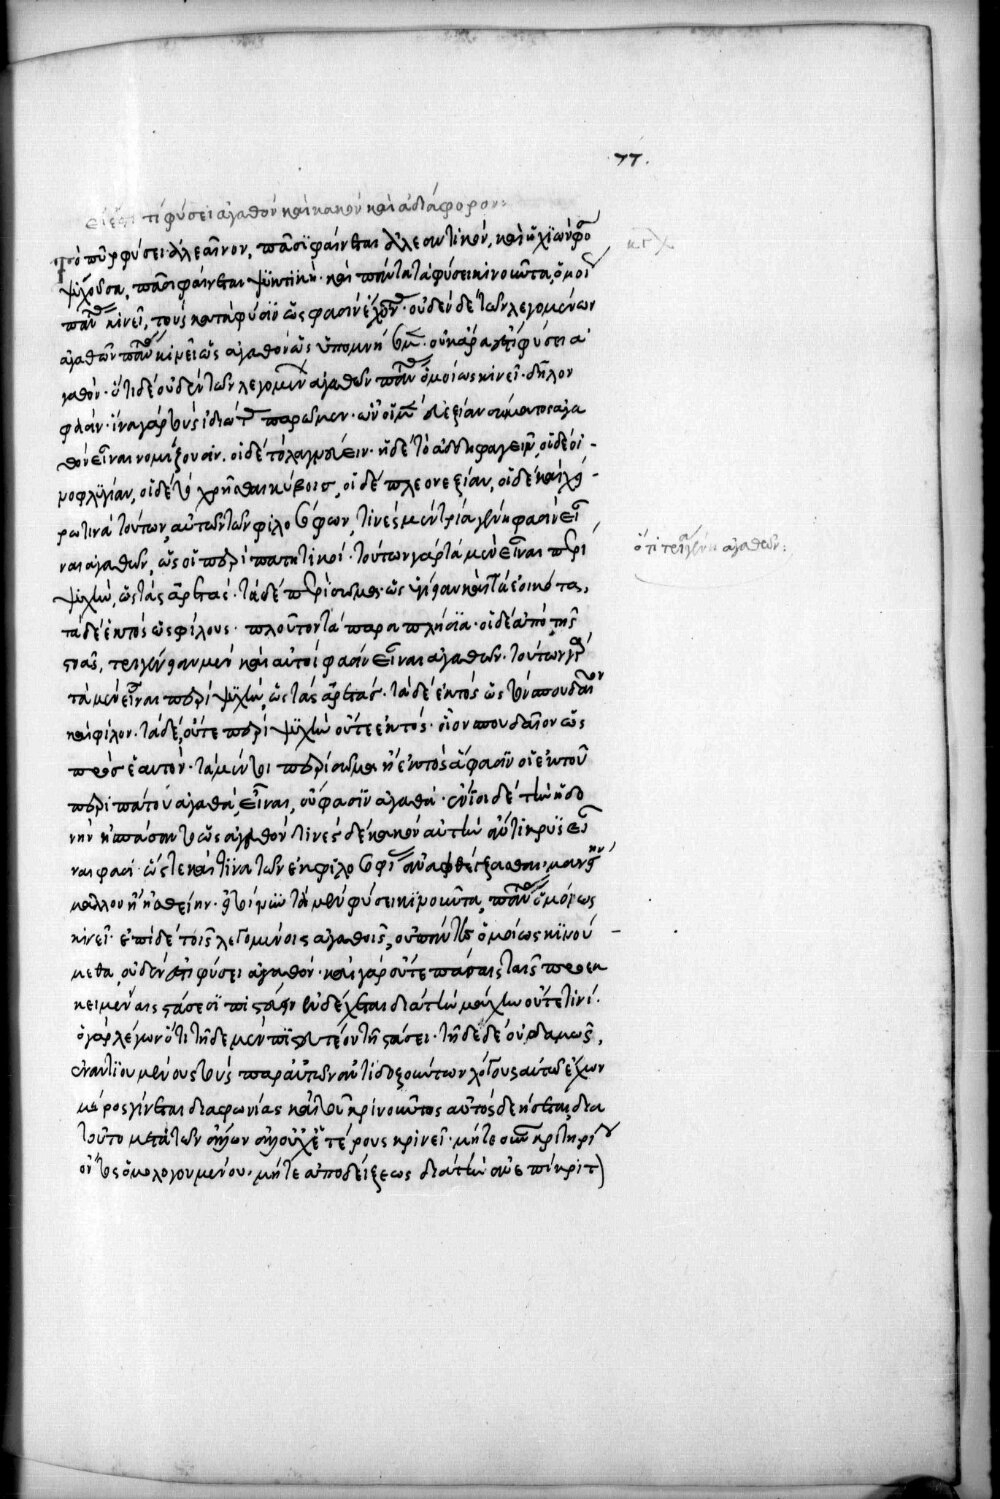 77.
εἰ ἔστι τί φύσει ἀγαθὸν καὶ κακὸν καὶ ἀδιάφορον:
Τὸ πῦρ φύσει ἀλεαῖνον, πᾶσι φαίνεται ἀλεαντικόν, καὶ ἡ χιὼν φύσει
ψύχουσα, πᾶσι φαίνεται ψυκτική· καὶ πάντα τὰ φύσει κινοῦντα, ὁμοίως
πάντας κινεῖ, τοὺς κατὰ φύσιν ὥς φασιν ἔχοντας· οὐδὲν δὲ τῶν λεγομένων
ἀγαθῶν πάντας κινεῖ ὡς ἀγαθὸν ὡς ὑπομνήσομεν· οὐκ ἄρα ἔστι φύσει ἀ
γαθόν· ὅτι δὲ οὐδὲν τῶν λεγομένων ἀγαθῶν πάντας ὁμοίως κινεῖ· δῆλον
φασίν· ἵνα γὰρ τοὺς ἰδιώτας παρῶμεν· ὧν οἱ μὲν εὐεξίαν σώματος ἀγα
θὸν εἶναι νομίζουσιν. οἱ δὲ τὸ λαγνεύειν· οἱ δὲ τὸ ἀδηφαγεῖν, οἱ δὲ οἰ-
νοφλυγίαν, οἱ δὲ τὸ χρῆσθαι κύβοις, οἱ δὲ πλεονεξίαν, οἱ δὲ καὶ χεί-
ρω τινὰ τούτων, αὐτῶν τῶν φιλοσόφων, τινὲς μὲν τρία γένη φασὶν εἶ
ναι ἀγαθῶν, ὡς οἱ περιπατητικοί· τούτων γὰρ τὰ μὲν εἶναι περὶ
ψυχὴν, ὡς τὰς ἀρετάς· τὰ δὲ περὶ σῶμα· ὡς ὑγίειαν καὶ τὰ ἐοικότα,
τὰ δὲ ἐκτὸς ὡς φίλους· πλοῦτον τὰ παραπλήσια· οἱ δὲ ἀπὸ τῆς
στοᾶς, τριγένειαν μὲν καὶ αὐτοί φασιν εἶναι ἀγαθῶν· τούτων γὰρ
τὰ μὲν εἶναι περὶ ψυχὴν, ὡς τὰς ἀρετάς· τὰ δὲ ἐκτὸς ὡς τὸν σπουδαῖον
καὶ φίλον· τὰ δὲ, οὔτε περὶ ψυχὴν οὔτε ἐκτός· οἷον σπουδαῖον ὡς
πρὸς ἑαυτόν· τὰ μέντοι περὶ σῶμα ἢ ἐκτὸς ἅ φασιν οἱ ἐκ τοῦ
περιπάτου ἀγαθὰ εἶναι, οὔ φασιν ἀγαθά· ἔνιοι δὲ τὴν ἡδο
νὴν ἠσπάσαντο ὡς ἀγαθὸν τινὲς δὲ κακὸν αὐτὴν ἄντικρυς εἶ
ναι φασί· ὥστε καί τινα τῶν ἐκ φιλοσοφίας ἀναφθέγξασθαι· μανείην
μᾶλλον ἢ ἡσθείην· εἰ τοίνυν τὰ μὲν φύσει κινοῦντα, πάντας ὁμοίως
κινεῖ· ἐπὶ δὲ τοῖς λεγομένοις ἀγαθοῖς, οὐ πάντες ὁμοίως κινού -
μεθα, οὐδὲν ἔστι φύσει ἀγαθόν· καὶ γὰρ οὔτε πάσαις ταῖς προεκ
κειμέναις στάσεσι πιστεύειν ἐνδέχεται διὰ τὴν μάχην οὔτε τινί·
ὁ γὰρ λέγων ὅτι τῇδε μὲν πιστευτέον τῇ στάσει· τῇ δὲ δὲ οὐδαμῶς,
ἐναντιουμένους τοὺς παρὰ τῶν ἀντιδοξούντων λόγους αὐτῷ ἔχων
μέρος γίνεται διαφωνίας καὶ τοῦ κρινοῦντος αὐτὸς δεήσεται, διὰ
τοῦτο μετὰ τῶν ἄλλων ἀλλ' οὐχ ἑτέρους κρινεῖ· μήτε οὖν κριτηρί
ου ὄντος ὁμολογουμένου· μήτε ἀποδείξεως διὰ τὴν ἀνεπίκριτ)
ὅτι τρία γένη ἀγαθῶν: